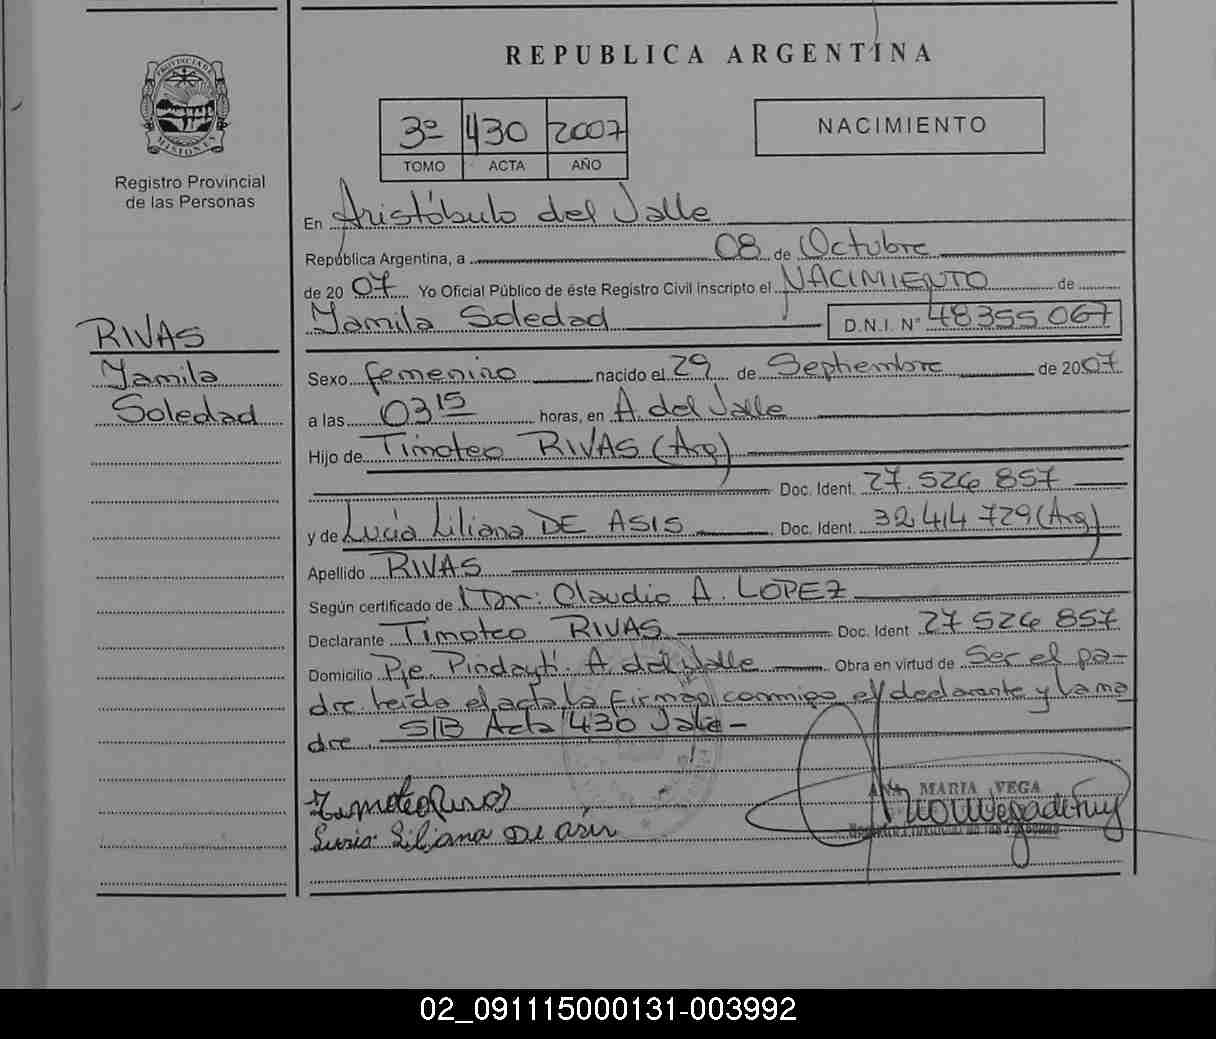 REPUBLICA ARGENTINA
PROVINCIA DE
MISIONES
Registro Provincial
de las Personas
3º 430 2007
TOMO ACTA AÑO
NACIMIENTO
En Aristóbulo del Valle
República Argentina, a 08 de Octubre
de 20 07 Yo Oficial Público de éste Registro Civil inscripto el NACIMIENTO de
Yamila Soledad D.N.I. Nº 48355067
RIVAS
Yamila
Soledad
Sexo femenino nacido el 29 de Septiembre de 2007
a las 03 15 horas, en A. del Valle
Hijo de Timoteo RIVAS (Arg)
Doc. Ident. 27.526 857
y de Lucía Liliana DE ASIS Doc. Ident. 32 414 729 (Arg)
Apellido RIVAS
Según certificado de Dr: Claudio A. LOPEZ
Declarante Timoteo RIVAS Doc. Ident 27 526 857
Domicilio Pje. Pindaytí. A. del Valle Obra en virtud de Ser el pa-
dre leída el acta la firman conmigo el declarante y la ma
dre S/B Acta 430 Vale -
Timoteo Rivas
Lusia Liliana De asis
ANA MARIA VEGA
02_091115000131-003992